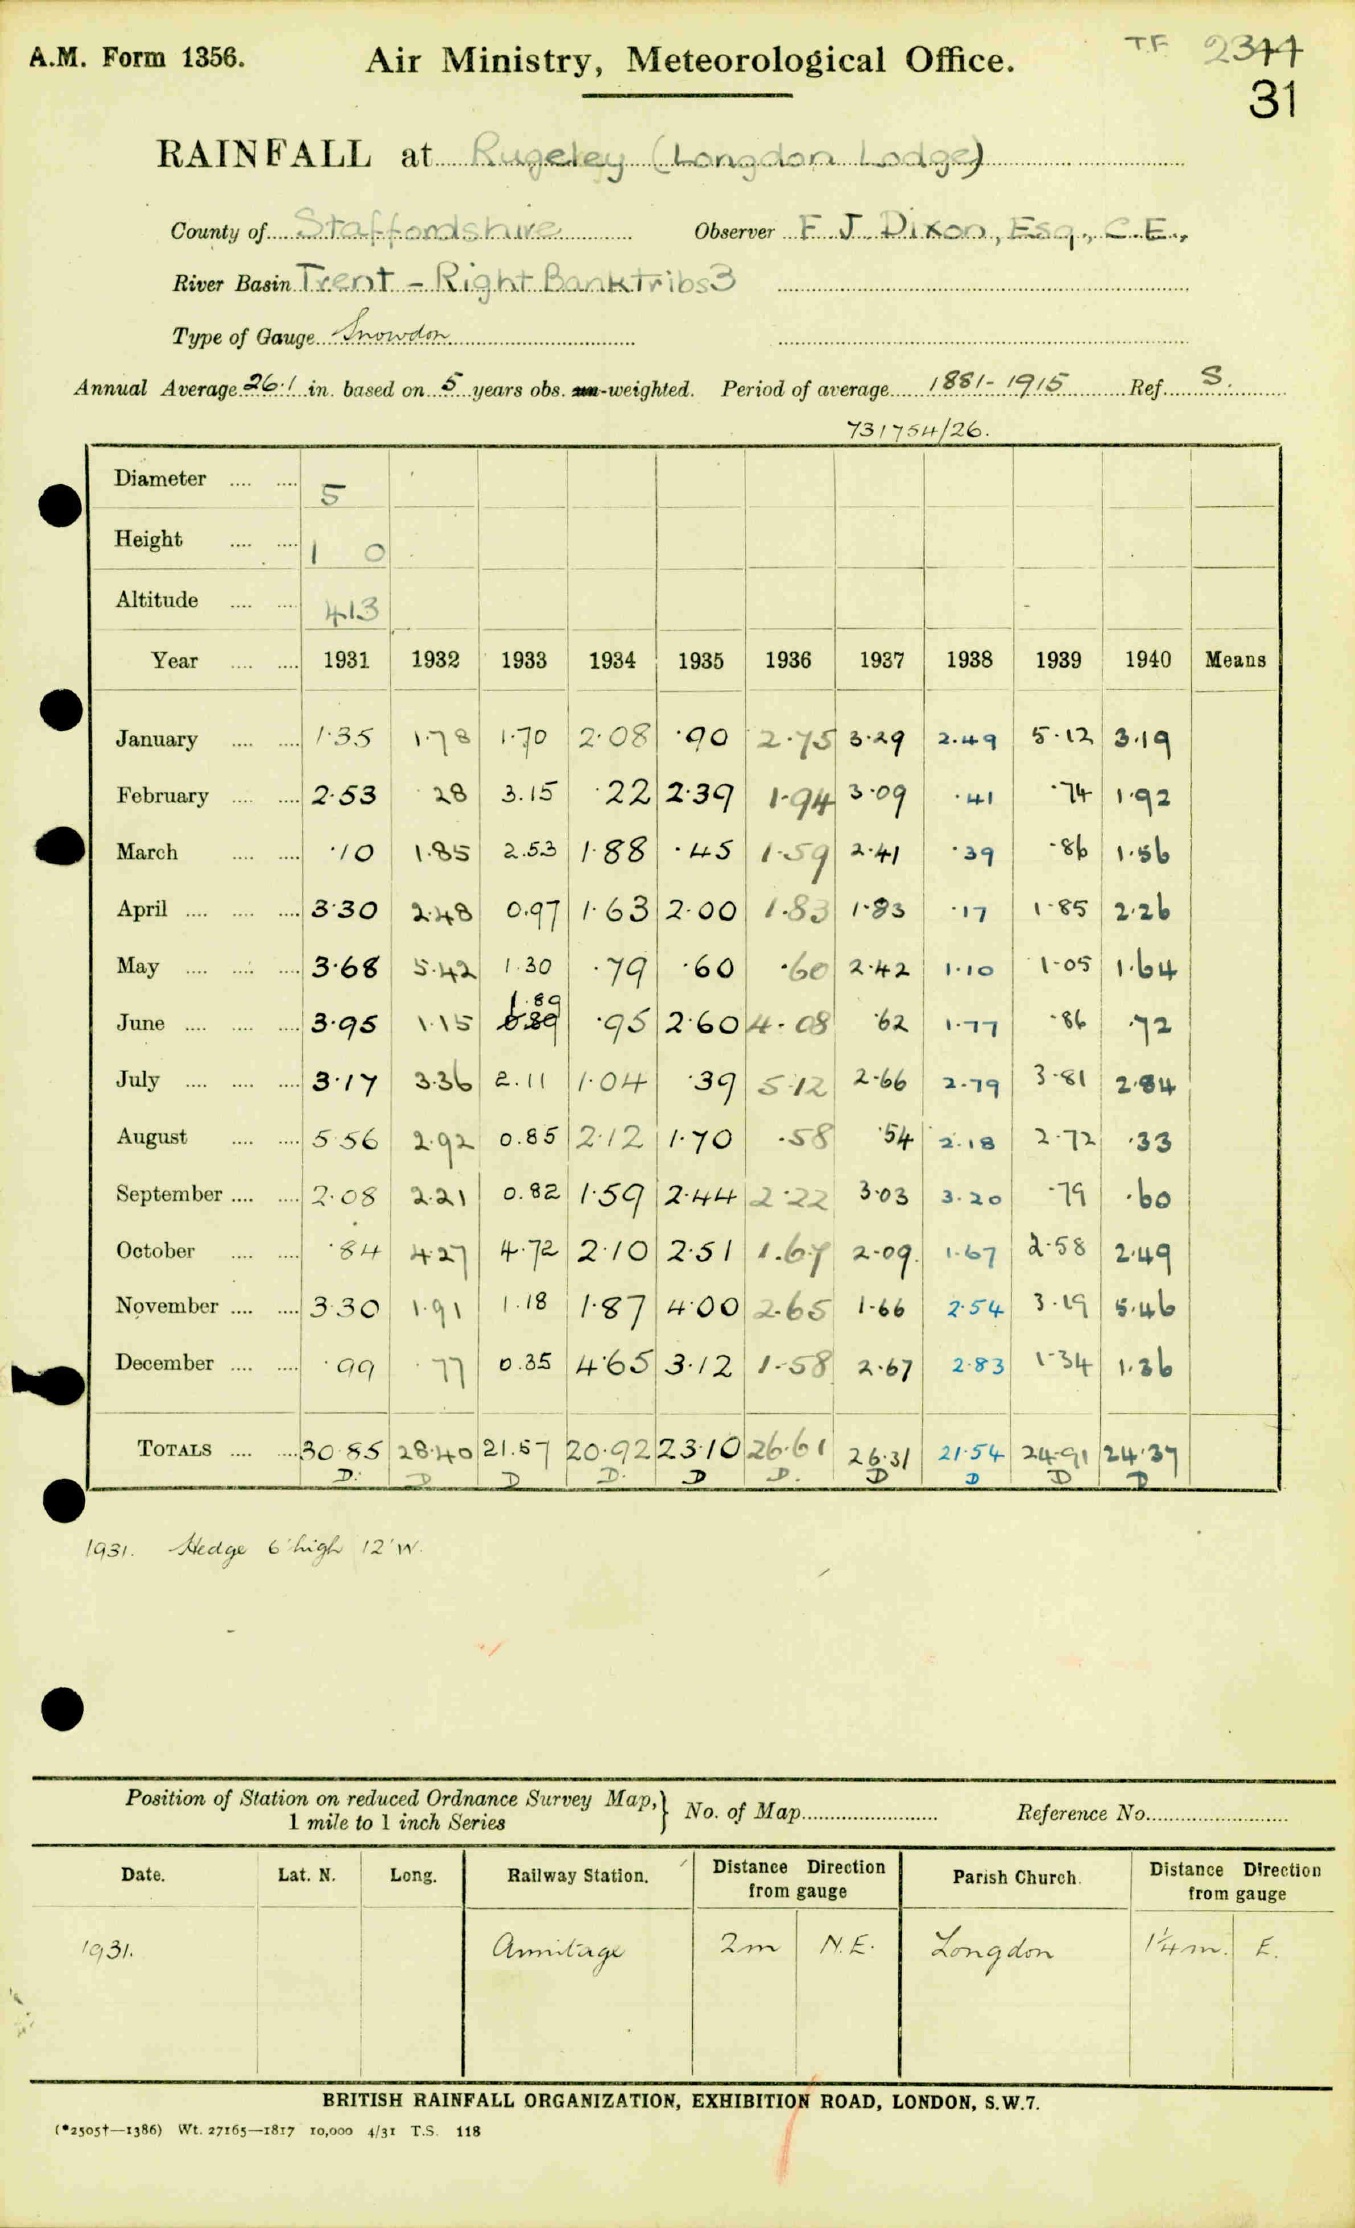 A.M. Form 1356.
Air Ministry, Meteorological Office.
T.F. 2344
31
RAINFALL at Rugeley (Longdon Lodge)
County of Staffordshire Observer F. J. Dixon, Esq., C.E.,
River Basin Trent - Right Bank Tribs 3
Type of Gauge Snowdon
Annual Average 26.1 in. based on 5 years obs. un-weighted. Period of average 1881-1915 Ref. S.
731754/26.
Diameter .... .... 5
Height .... .... 1 0
Altitude .... .... 413
Year .... .... 1931 1932 1933 1934 1935 1936 1937 1938 1939 1940 Means
January .... .... 1.35 1.78 1.70 2.08 .90 2.75 3.29 2.49 5.12 3.19
February .... .... 2.53 .28 3.15 .22 2.39 1.94 3.09 .41 .74 1.92
March .... .... .10 1.85 2.53 1.88 .45 1.59 2.41 .39 .86 1.56
April .... .... .... 3.30 2.48 0.97 1.63 2.00 1.83 1.83 .17 1.85 2.26
May .... .... .... 3.68 5.42 1.30 .79 .60 .60 2.42 1.10 1.05 1.64
1.89
June .... .... .... 3.95 1.15 0.89 .95 2.60 4.08 .62 1.77 .86 .72
July .... .... .... 3.17 3.36 2.11 1.04 .39 5.12 2.66 2.79 3.81 2.84
August .... .... 5.56 2.92 0.85 2.12 1.70 .58 .54 2.18 2.72 .33
September .... .... 2.08 2.21 0.82 1.59 2.44 2.22 3.03 3.20 .79 .60
October .... .... .84 4.27 4.72 2.10 2.51 1.67 2.09 1.67 2.58 2.49
November .... .... 3.30 1.91 1.18 1.87 4.00 2.65 1.66 2.54 3.19 5.46
December .... .... .99 .77 0.35 4.65 3.12 1.58 2.67 2.83 1.34 1.36
TOTALS .... .... 30.85 28.40 21.57 20.92 23.10 26.61 26.31 21.54 24.91 24.37
D. D D D. D D. D D D D
1931. Hedge 6' high 12' W.
Position of Station on reduced Ordnance Survey Map,} No. of Map Reference No.
1 mile to 1 inch Series
Date. Lat. N. Long. Railway Station. Distance Direction from gauge Parish Church. Distance Direction from gauge
1931. Armitage 2m N.E. Longdon 1¼m. E.
BRITISH RAINFALL ORGANIZATION, EXHIBITION ROAD, LONDON, S.W.7.
(*2505†—1386) Wt. 27165—1817 10,000 4/31 T.S. 118